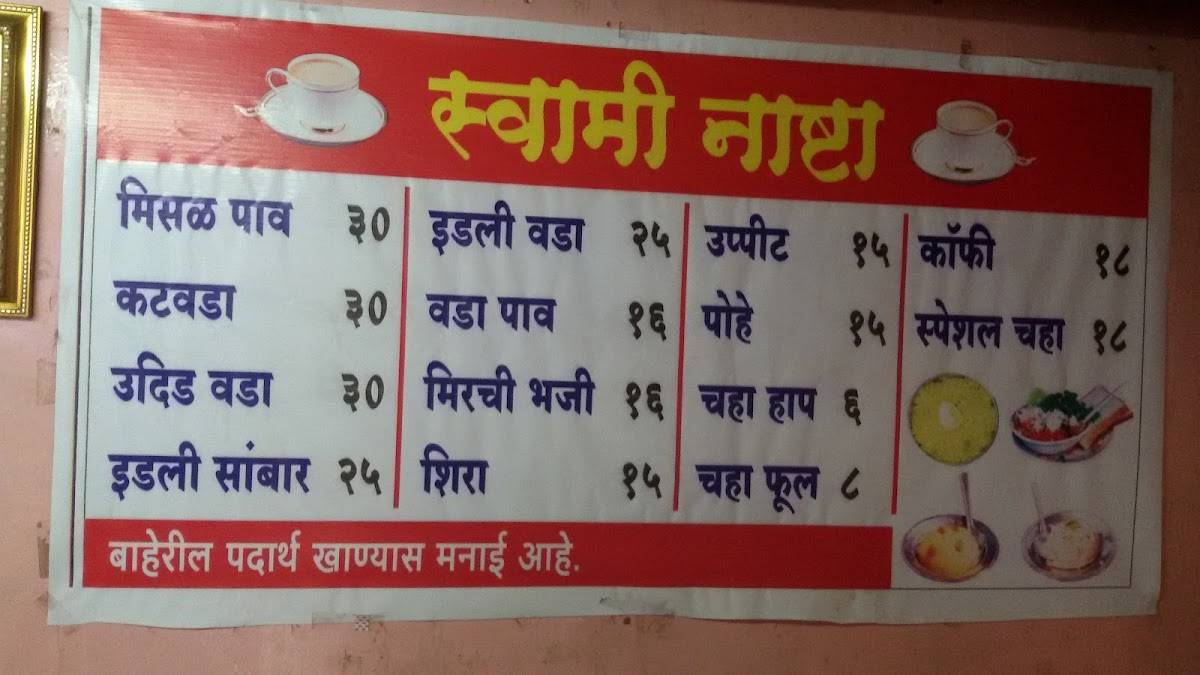 स्वामी नाष्टा
मिसळ पाव ३०
कटवडा ३०
उदिड वडा ३०
इडली सांबार २५
इडली वडा २५
वडा पाव १६
मिरची भजी १६
शिरा १५
उप्पीट १५
पोहे १५
चहा हाप ६
चहा फूल ८
कॉफी १८
स्पेशल चहा १८
बाहेरील पदार्थ खाण्यास मनाई आहे.